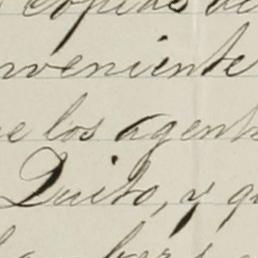 copias de
nveniente
e los agent
Quito, y q